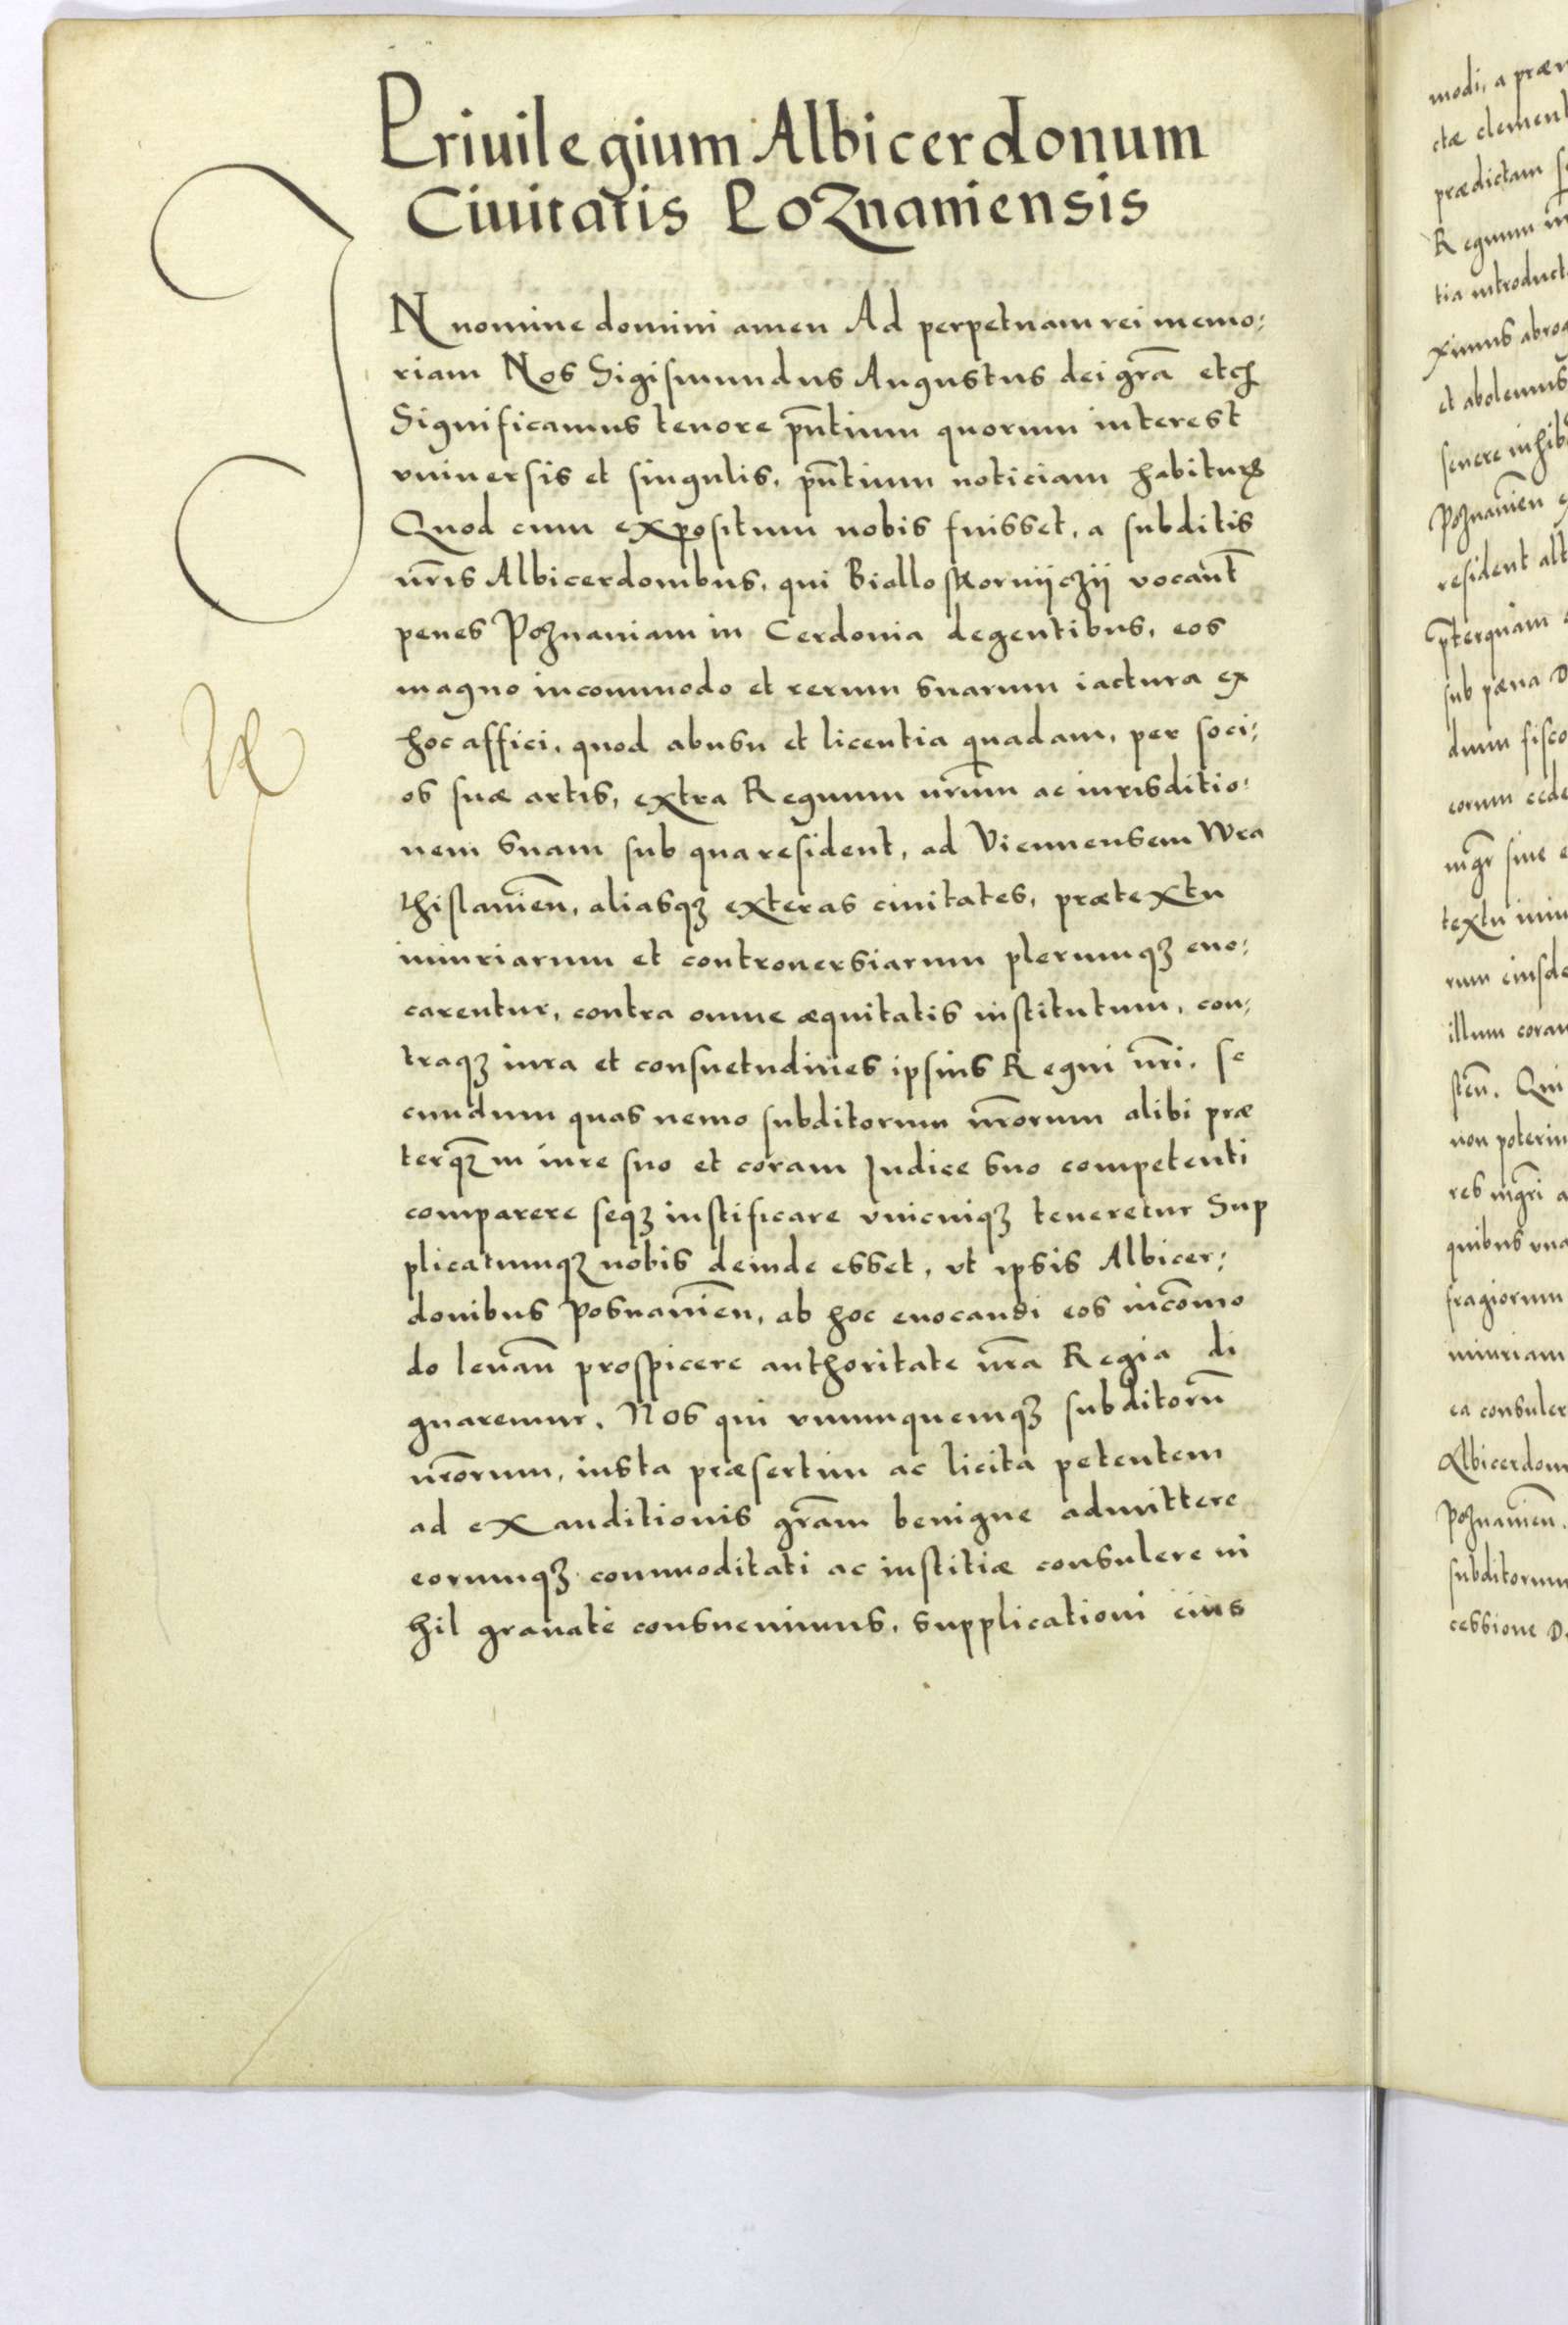 Priuilegium Albicerdonum
Ciuitatis Poznaniensis
IN nomine domini amen Ad perpetuam rei memo:
riam Nos Sigismundus Augustus dei gr̄a etc̄
Significamus tenore pn̄tium quorum interest
vniuersis et singulis, pn̄tium noticiam habiturꝭ
Quod cum expositum nobis fuisset, a subditis
nr̄is Albicerdonibus, qui Biallo skorniiczii vocant̄
penes Poznaniam in Cerdonia degentibus, eos
magno incommodo et rerum suarum iactura ex
hoc affici, quod abusu et licentia quadam, per soci:
os suæ artis, extra Regnum nr̄um ac iurisditio:
nem suam sub qua resident, ad Viennensem Wra
thislauien̄, aliasqꝫ exteras ciuitates, prætextu
iniuriarum et controuersiarum plerumqꝫ euo:
carentur, contra omne æquitatis institutum, con:
traqꝫ iura et consuetudines ipsius Regni nr̄i. se
cundum quas nemo subditorum nr̄orum alibi præ
terqꝫ in iure suo et coram Iudice suo competenti
comparere seqꝫ iustificare vnicuiqꝫ teneretur Sup
plicatumqꝫ nobis deinde esset, vt ipsis Albicer:
donibus Posnanien̄, ab hoc euocandi eos incōmo
do leuan̄ prospicere authoritate nr̄a Regia di
gnaremur. Nos qui vnumquemqꝫ subditorū
nr̄orum, iusta præsertim ac licita petentem
ad exauditionis gr̄am benigne admittere
eorumqꝫ commoditati ac iustitiæ consulere ni
hil grauate consueuimus, supplicationi eius
modi, a
ctæ
prædictam
Regnum
tia
ximus
et abolemus
senere
Poznanien̄
resident
pr̄terquam
sub pæna
dum fisco
eorum
siue
textu
rum
illum
Qui
non
res
quibus
fragiorum
iniuriam
ea
Poznanien̄.
subditorum
cessione